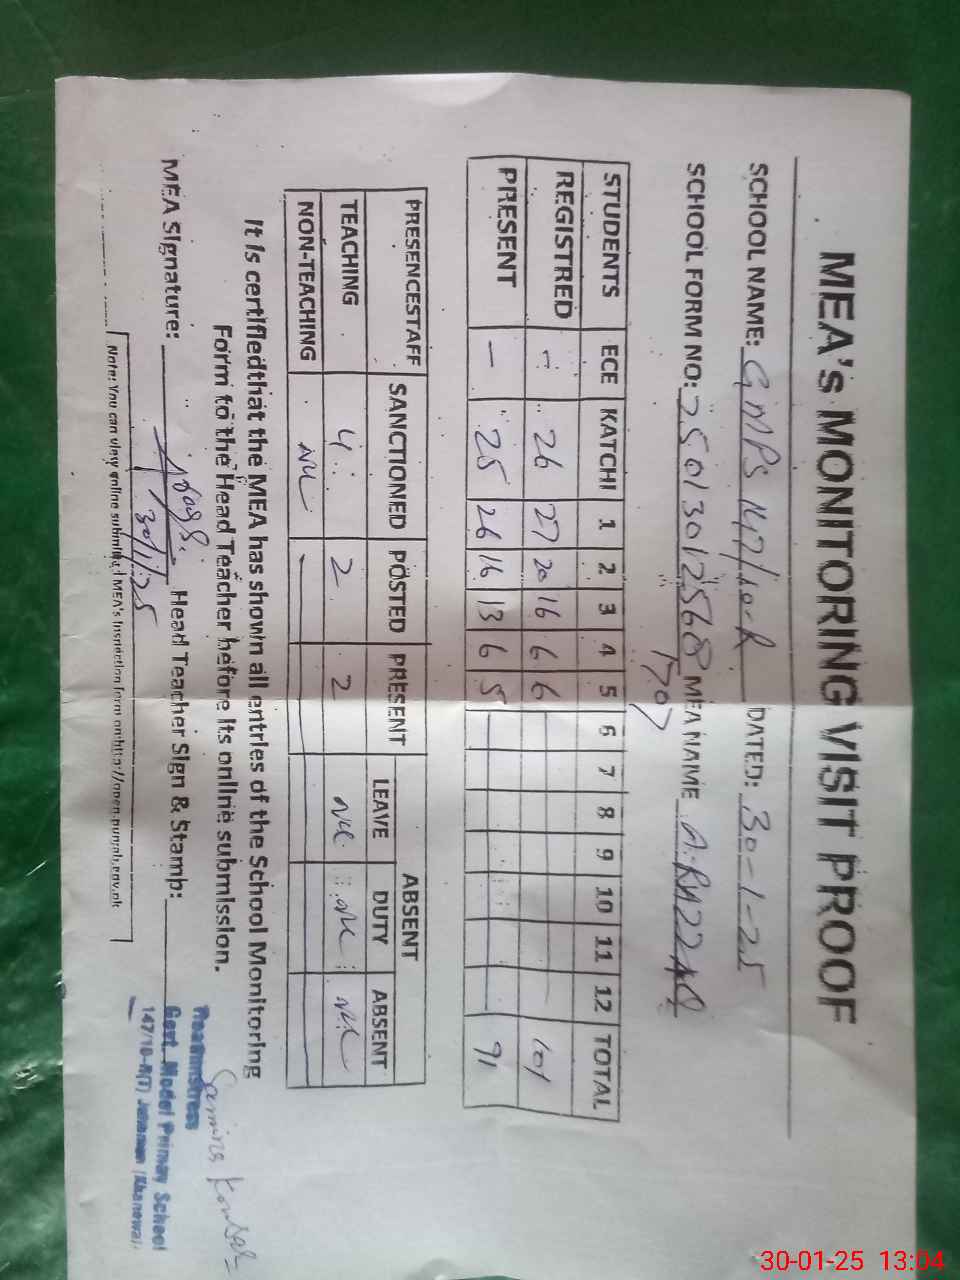 MEA's MONITORING VISIT PROOF
SCHOOL NAME: GMPS 147/10-R DATED: 30-1-25
SCHOOL FORM NO: 2501301256 MEA NAME A. RAZZAQ
1707
STUDENTS ECE KATCHI 1 2 3 4 5 6 7 8 9 10 11 12 TOTAL
REGISTRED - 26 27 20 16 6 6 101
PRESENT - 25 26 16 13 6 5 91
PRESENCESTAFF SANCTIONED POSTED PRESENT ABSENT
LEAVE DUTY ABSENT
TEACHING 4 2 2 Nil Nil Nil
NON-TEACHING Nil
It is certifiedthat the MEA has shown all entries of the School Monitoring
Form to the Head Teacher before its online submission.
MEA Signature: Head Teacher Sign & Stamp:
30/1/25
Samina Kousar
Headmistress
Govt. Model Primary School
147/10-R(T) Jahanian (Khanewal)
Note: You can view online submitted MEA's Inspection form on http://open.punjab.gov.pk
30-01-25 13:04